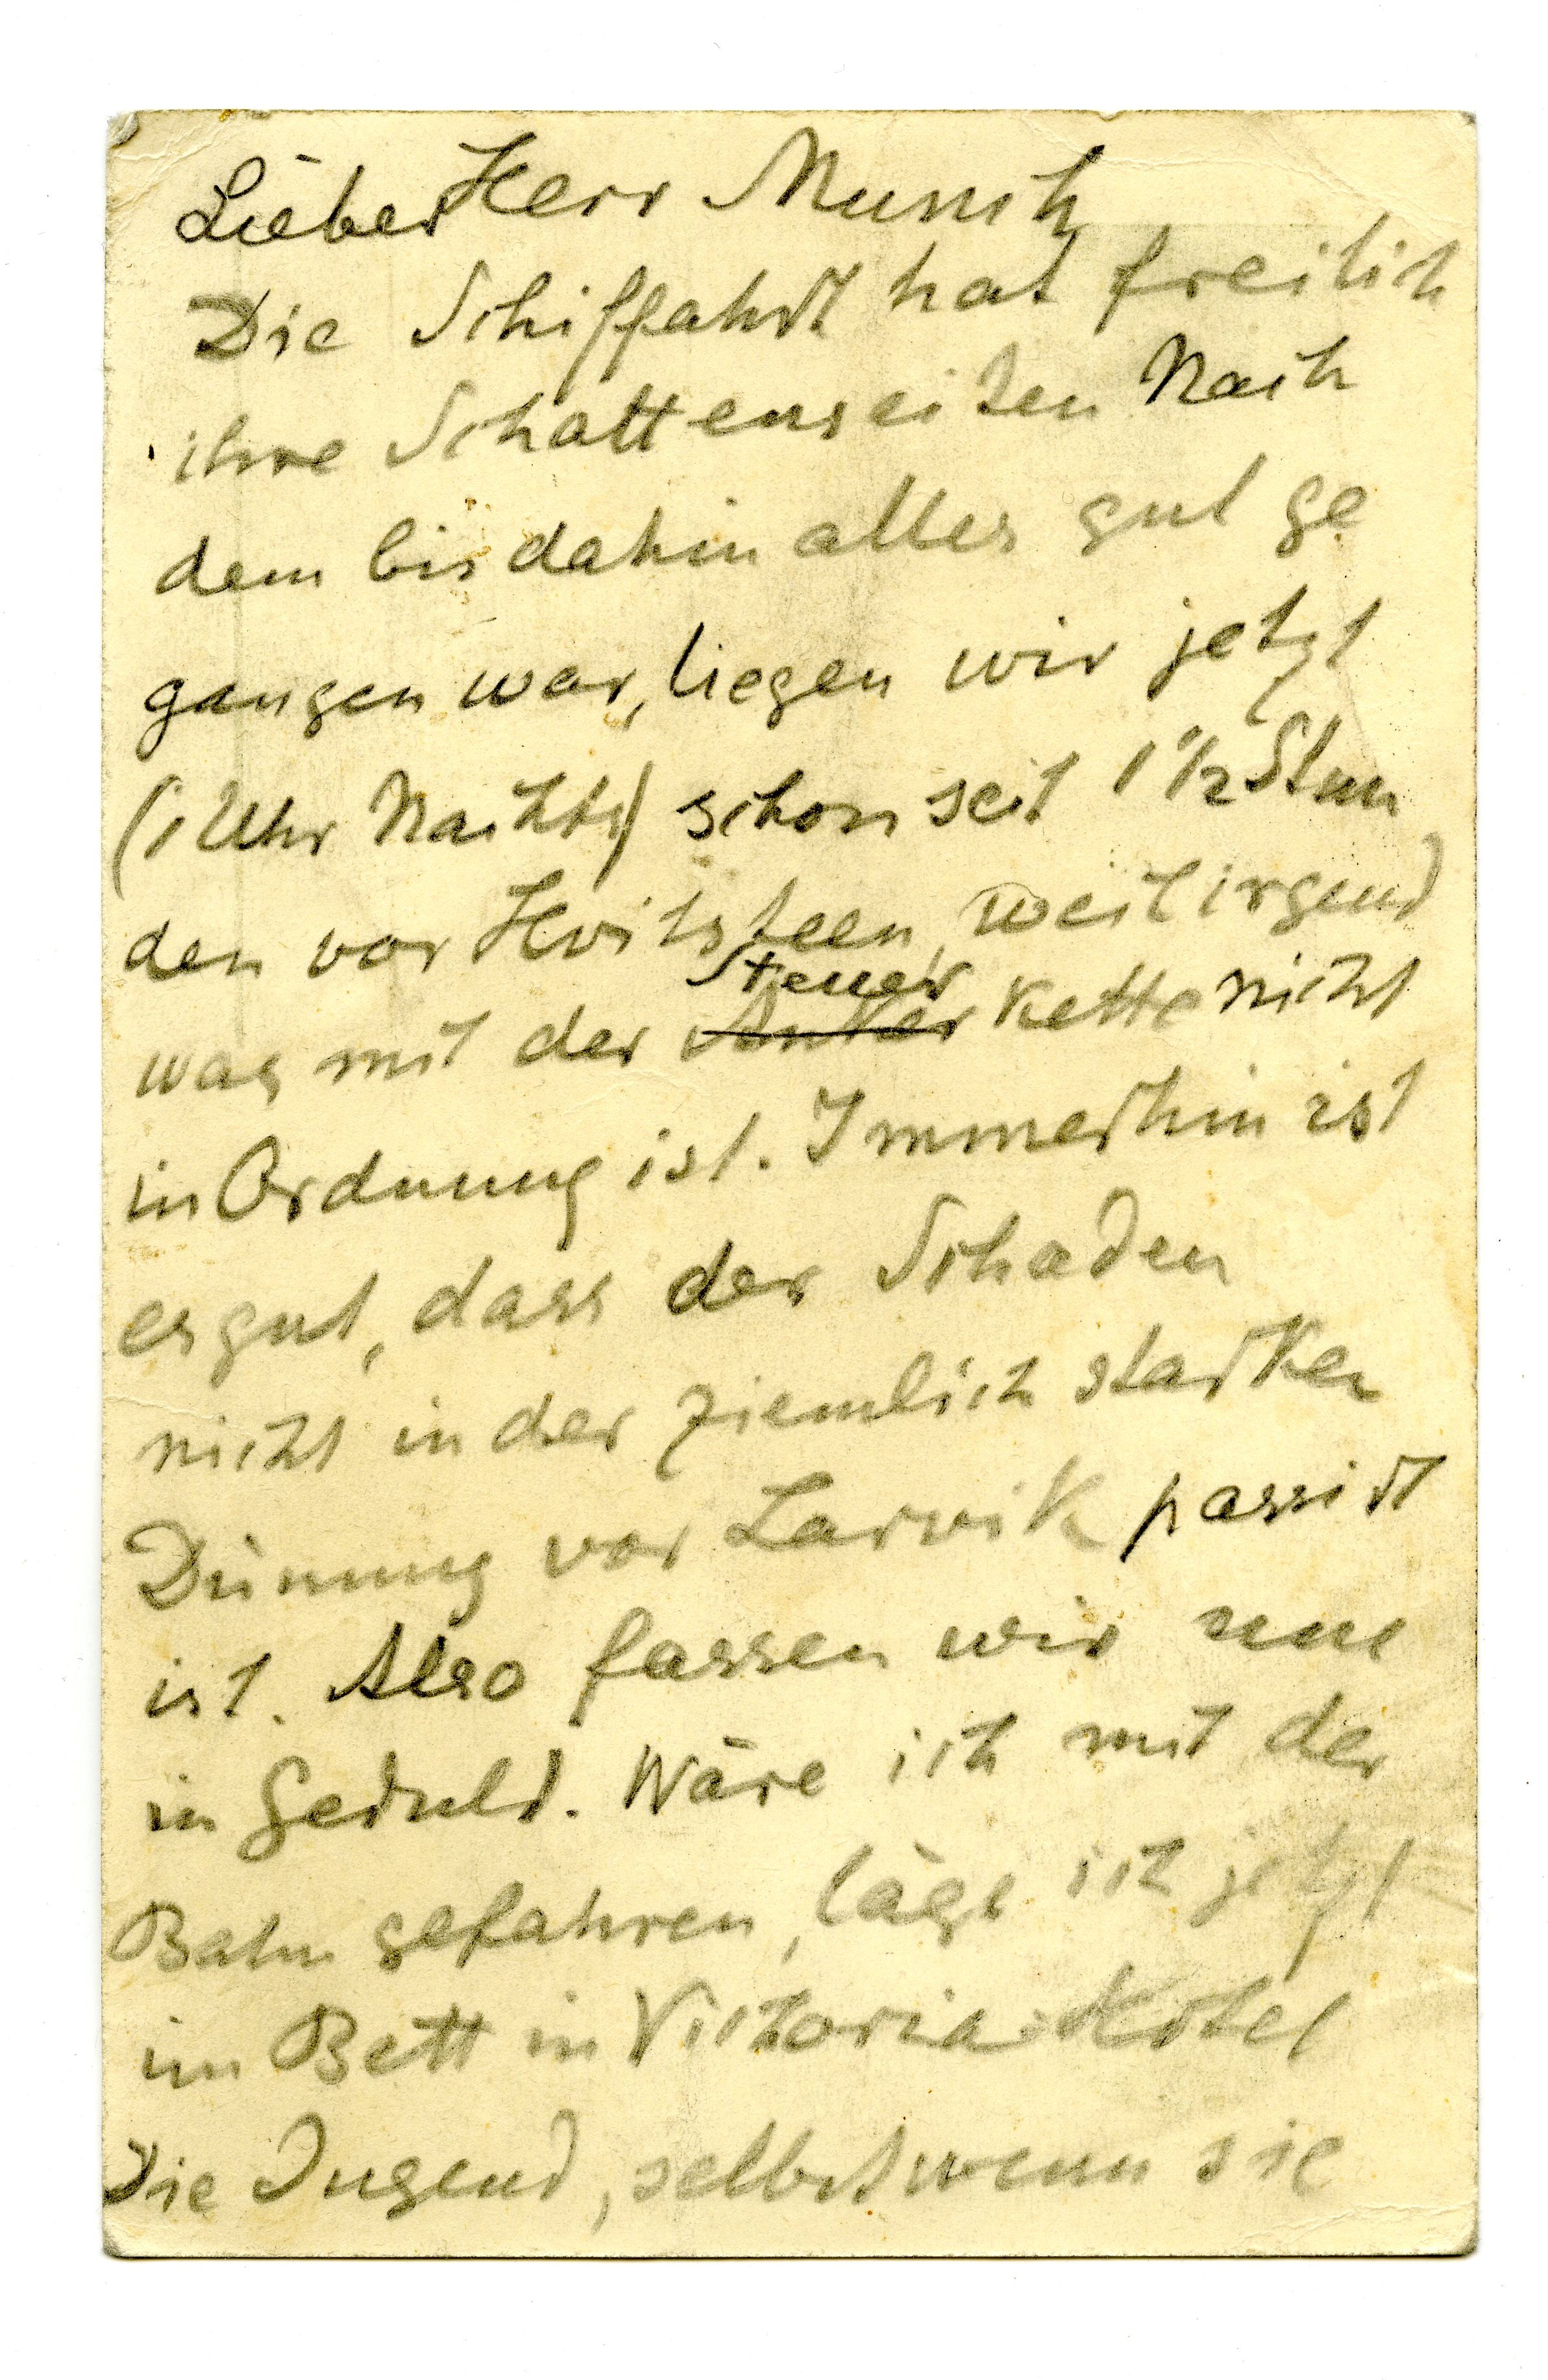 Lieber Herr Munch
Die Schiffahrt hat freilich
ihre Schattenseiten Nach
dem bis dahin alles gut ge
gangen war, liegen wir jetzt
(1 Uhr Nachts) schon seit 1 1/2 Stun
den vor Hvitsteen, weil irgend
Steuer
was mit der Anker kette nicht
in Ordnung ist. Immerhin ist
es gut, dass der Schaden
nicht in der ziemlich starken
Dünung vor Larvik passirt
ist. Also fassen wir uns
in Geduld. Wäre ich mit der
Bahn gefahren, läge ich jetzt
im Bett in Victoria Hotel
Die Jugend, selbst wenn sie